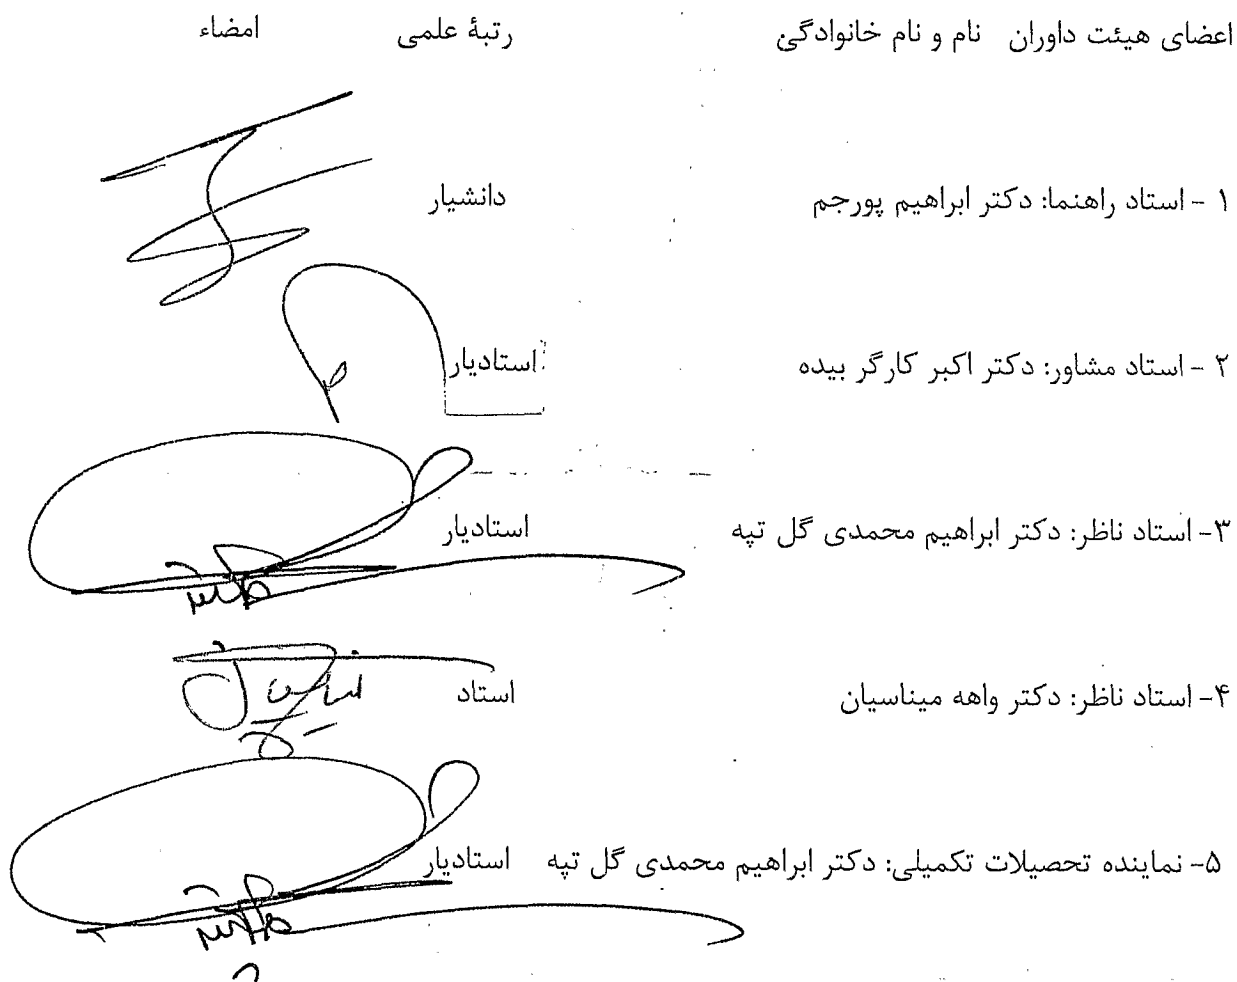 اعضای هیئت داوران   نام و نام خانوادگی   رتبهٔ علمی   امضاء
۱ - استاد راهنما: دکتر ابراهیم پورجم   دانشیار
۲ - استاد مشاور: دکتر اکبر کارگر بیده   استادیار
۳- استاد ناظر: دکتر ابراهیم محمدی گل تپه   استادیار
۴- استاد ناظر: دکتر واهه میناسیان   استاد
۵- نماینده تحصیلات تکمیلی: دکتر ابراهیم محمدی گل تپه   استادیار